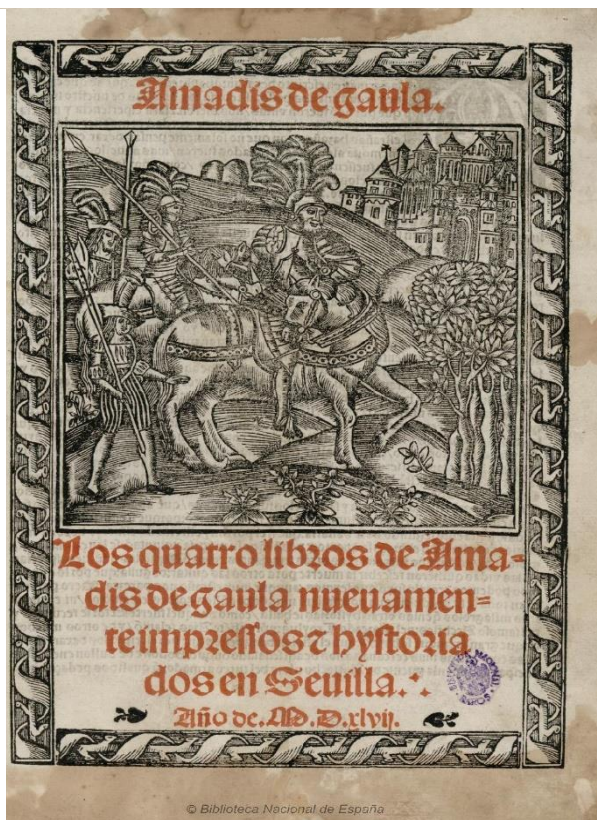 Amadis de gaula.
Los quatro libros de Ama-
dis de gaula nueuamen-
te impressos ⁊ hystoria
dos en Seuilla.·.
Año de. M.D.xlvij.
© Biblioteca Nacional de España